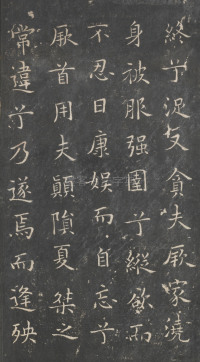 終兮浞又貪夫厥家澆
身被服强圉兮縱欲而
不忍日康娛而自忘兮
厥首用夫顛隕夏桀之
常違兮乃遂焉而逢殃